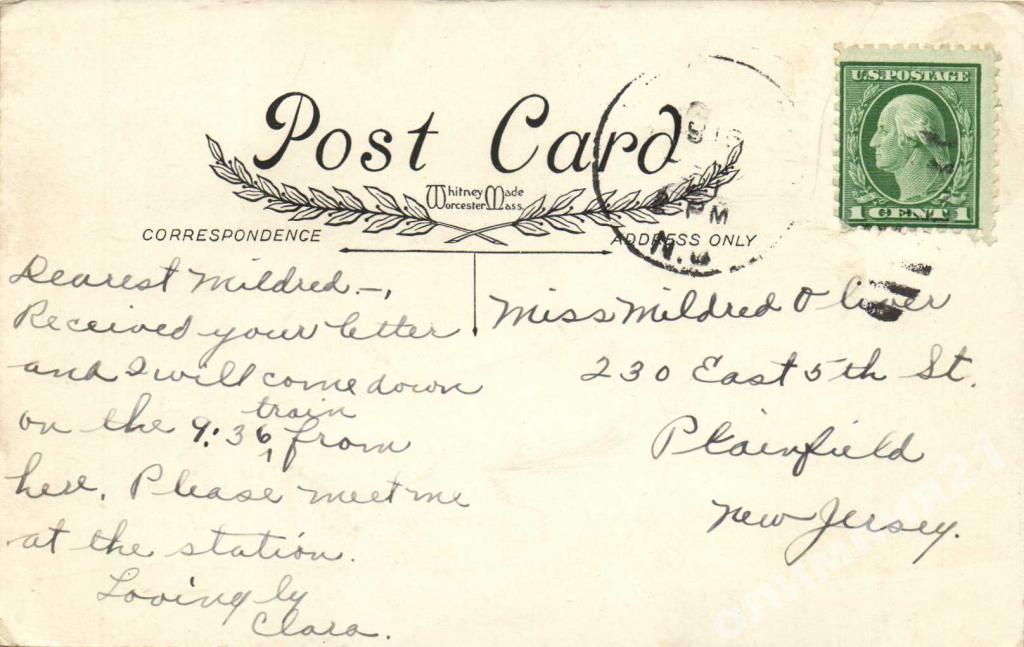 Post Card
Whitney Made
Worcester Mass.
CORRESPONDENCE
ADDRESS ONLY
U.S. POSTAGE
1 CENT 1
PM
N.J.
Dearest Mildred.—,
Received your letter
and I will come down
train
on the 9:36 , from
here. Please meet me
at the station.
Lovingly
Clara.
Miss Mildred Oliver
230 East 5th St.
Plainfield
New Jersey.